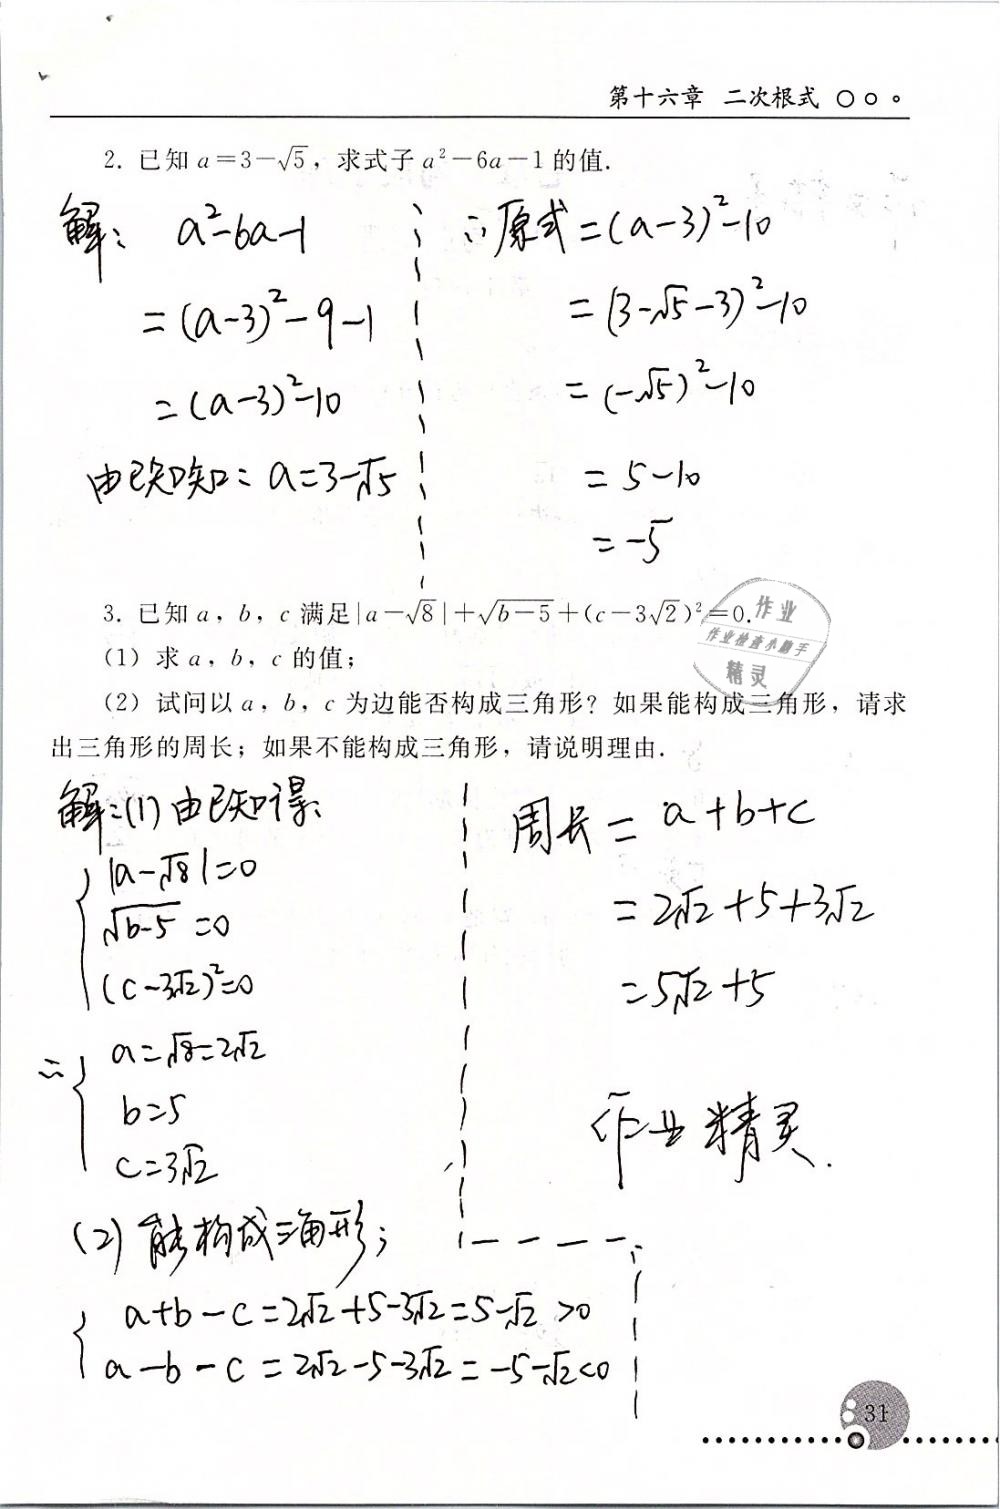 第十六章 二次根式
2. 已知 a=3-√5，求式子 a²-6a-1 的值.
解： a²-6a-1
=(a-3)²-9-1
=(a-3)²-10
由已知知： a=3-√5
∴原式=(a-3)²-10
=(3-√5-3)²-10
=(-√5)²-10
=5-10
=-5
3. 已知 a，b，c 满足|a-√8|+√(b-5)+(c-3√2)²=0.
作业
作业检查小助手
精灵
(1) 求 a，b，c 的值；
(2) 试问以 a，b，c 为边能否构成三角形？如果能构成三角形，请求
出三角形的周长；如果不能构成三角形，请说明理由.
解：(1)由已知得：
|a-√8|=0
√(b-5)=0
(c-3√2)²=0
∴ a=√8=2√2
b=5
c=3√2
(2) 能构成三角形；
a+b-c=2√2+5-3√2=5-√2>0
a-b-c=2√2-5-3√2=-5-√2<0
周长= a+b+c
=2√2+5+3√2
=5√2+5
作业精灵.
31